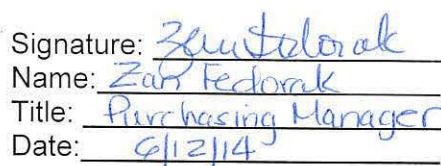 Signature: Zan Fedorak
Name: Zan Fedorak
Title: Purchasing Manager
Date: 6/12/14